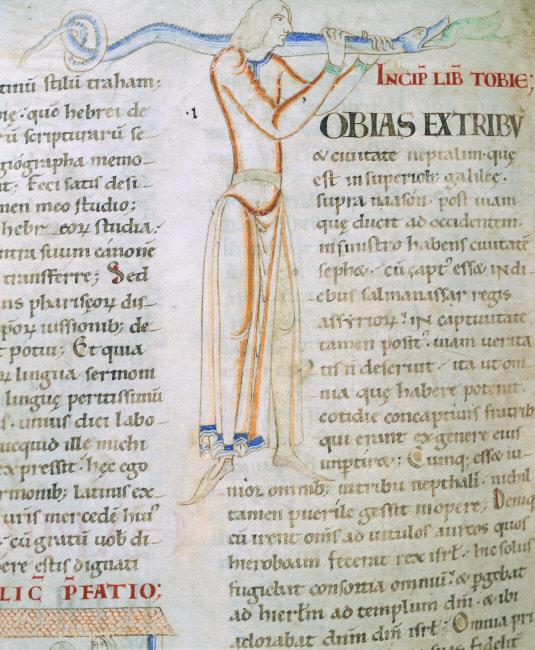 tinū stilū traham;
bię. quo hebrei de
rū scripturarū se-
giographa memo-
nt; Feci satis desi-
men meo studio;
hebreorꝝ studia.
ntra suum canone
transferre; Sed
ns pharisęorꝝ dis-
porꝝ iussionib; de-
t potui; Et quia
lingua sermoni
linguę peritissimū
s. unius diei labo-
icquid ille michi
expressit. hęc ego
rmonib; latinis ex-
uris mercedē hui'
. cū gratū uob di-
pere estis dignati
LIC̄ P̄FATIO;
INCIP̄ LIB̄ TOBIE;
OBIAS EX TRIBV
& ciuitate neptalim. quę
est in superiorib; galileę.
supra naason. post uiam
quę ducit ad occidentem.
in sinistro habens ciuitatē
sepheꞇ. cū capt' essꝫ in di-
ebus salmanassar regis
assyriorꝝ. in captiuitate
tamen posit'. uiam uerita
tis ñ deseruit. ita ut om-
nia quę habere poterat.
cotidie concaptiuis fratrib
qui erant ex genere eius
impertiret; Cunq; essꝫ iu-
nior omnib; in tribu nepthali. nichil
tamen puerile gessit in opere; Deniq
cū irent om̄s ad uitulos aureos quos
hieroboam fecerat rex isrł. hic solus
fugiebat consortia omniū. & ꝑgebat
ad hierłm ad templum dn̄i. & ibi
adorabat dn̄m dn̄i isrł; Omnia pri
suas fidelit